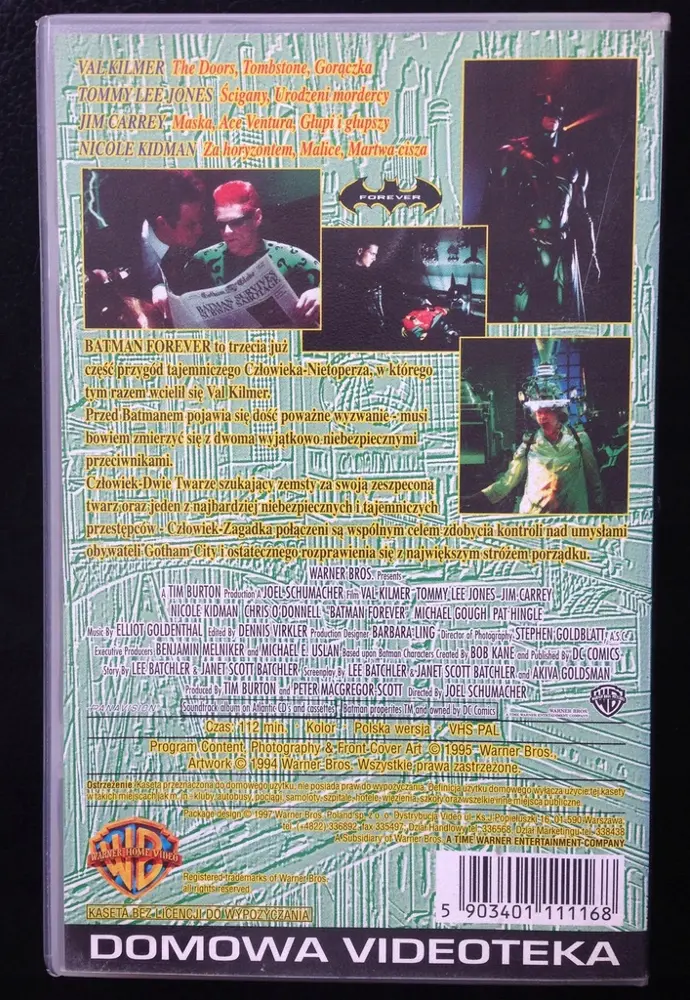 VAL KILMER The Doors, Tombstone, Gorączka
TOMMY LEE JONES Ścigany, Urodzeni mordercy
JIM CARREY Maska, Ace Ventura, Głupi i głupszy
NICOLE KIDMAN Za horyzontem, Malice, Martwa cisza
FOREVER
BATMAN SURVIVES
BATMAN FOREVER to trzecia już
część przygód tajemniczego Człowieka-Nietoperza, w którego
tym razem wcielił się Val Kilmer.
Przed Batmanem pojawia się dość poważne wyzwanie - musi
bowiem zmierzyć się z dwoma wyjątkowo niebezpiecznymi
przeciwnikami.
Człowiek-Dwie Twarze szukający zemsty za swoją zeszpeconą
twarz oraz jeden z najbardziej niebezpiecznych i tajemniczych
przestępców - Człowiek-Zagadka połączeni są wspólnym celem zdobycia kontroli nad umysłami
obywateli Gotham City i ostatecznego rozprawienia się z największym stróżem porządku.
WARNER BROS. Presents
A TIM BURTON Production A JOEL SCHUMACHER Film VAL KILMER TOMMY LEE JONES JIM CARREY
NICOLE KIDMAN CHRIS O'DONNELL "BATMAN FOREVER" MICHAEL GOUGH PAT HINGLE
Music By ELLIOT GOLDENTHAL Edited By DENNIS VIRKLER Production Designer BARBARA LING Director of Photography STEPHEN GOLDBLATT A.S.C.
Executive Producers BENJAMIN MELNIKER and MICHAEL E. USLAN Based upon Batman Characters Created By BOB KANE and Published By DC COMICS
Story By LEE BATCHLER & JANET SCOTT BATCHLER Screenplay By LEE BATCHLER & JANET SCOTT BATCHLER and AKIVA GOLDSMAN
Produced By TIM BURTON and PETER MACGREGOR-SCOTT Directed By JOEL SCHUMACHER
PANAVISION Soundtrack album on Atlantic CD's and cassettes Batman properites TM and owned by DC Comics
WARNER BROS.
A TIME WARNER ENTERTAINMENT COMPANY
Czas: 112 min. Kolor Polska wersja VHS PAL
Program Content, Photography & Front Cover Art © 1995 Warner Bros.,
Artwork © 1994 Warner Bros. Wszystkie prawa zastrzeżone.
Ostrzeżenie: Kaseta przeznaczona do domowego użytku, nie posiada praw do wypożyczania. Definicja użytku domowego wyłącza użycie tej kasety
w takich miejscach jak m. in.: kluby, autobusy, pociągi, samoloty, szpitale, hotele, więzienia, szkoły oraz wszelkie inne miejsca publiczne.
Package design © 1997 Warner Bros. Poland sp. z o. o. Dystrybucja Video ul. Ks. J. Popiełuszki 16, 01-590 Warszawa,
tel. (+4822) 336892, fax 335497. Dział Handlowy tel. 336568. Dział Marketingu tel. 338438
A Subsidiary of Warner Bros. A TIME WARNER ENTERTAINMENT COMPANY
WARNER HOME VIDEO
Registered trademarks of Warner Bros.
all rights reserved
KASETA BEZ LICENCJI DO WYPOŻYCZANIA
5 903401 111168
DOMOWA VIDEOTEKA